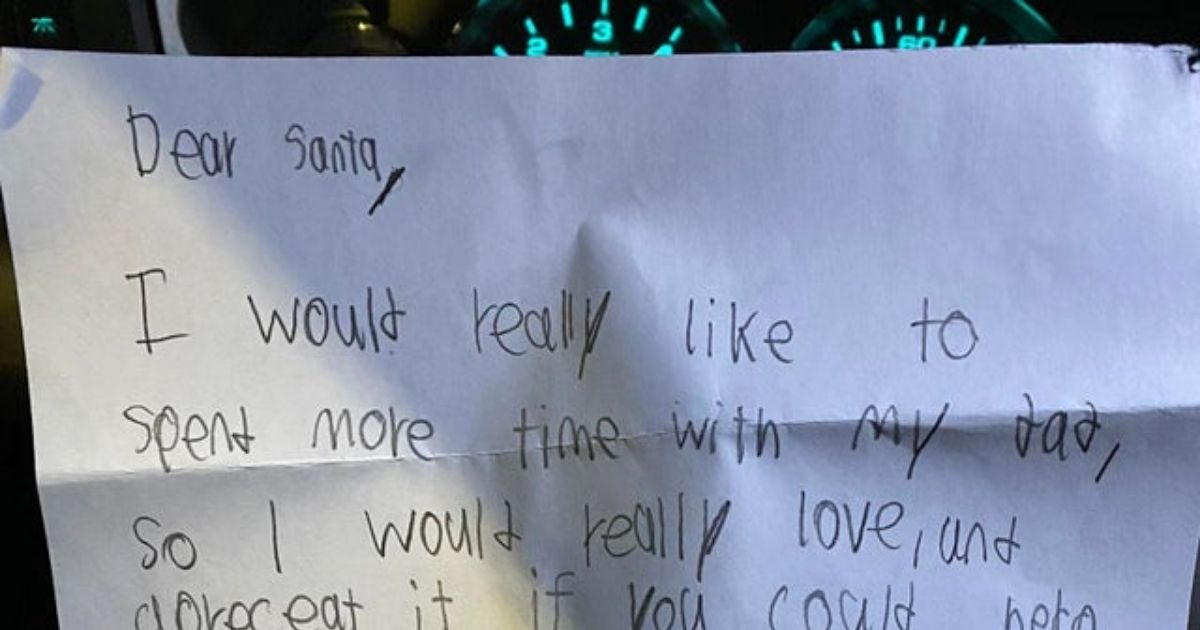 2 3 4
60
Dear Santa,
I would really like to
spend more time with my dad,
so I would really love, and
it if you could